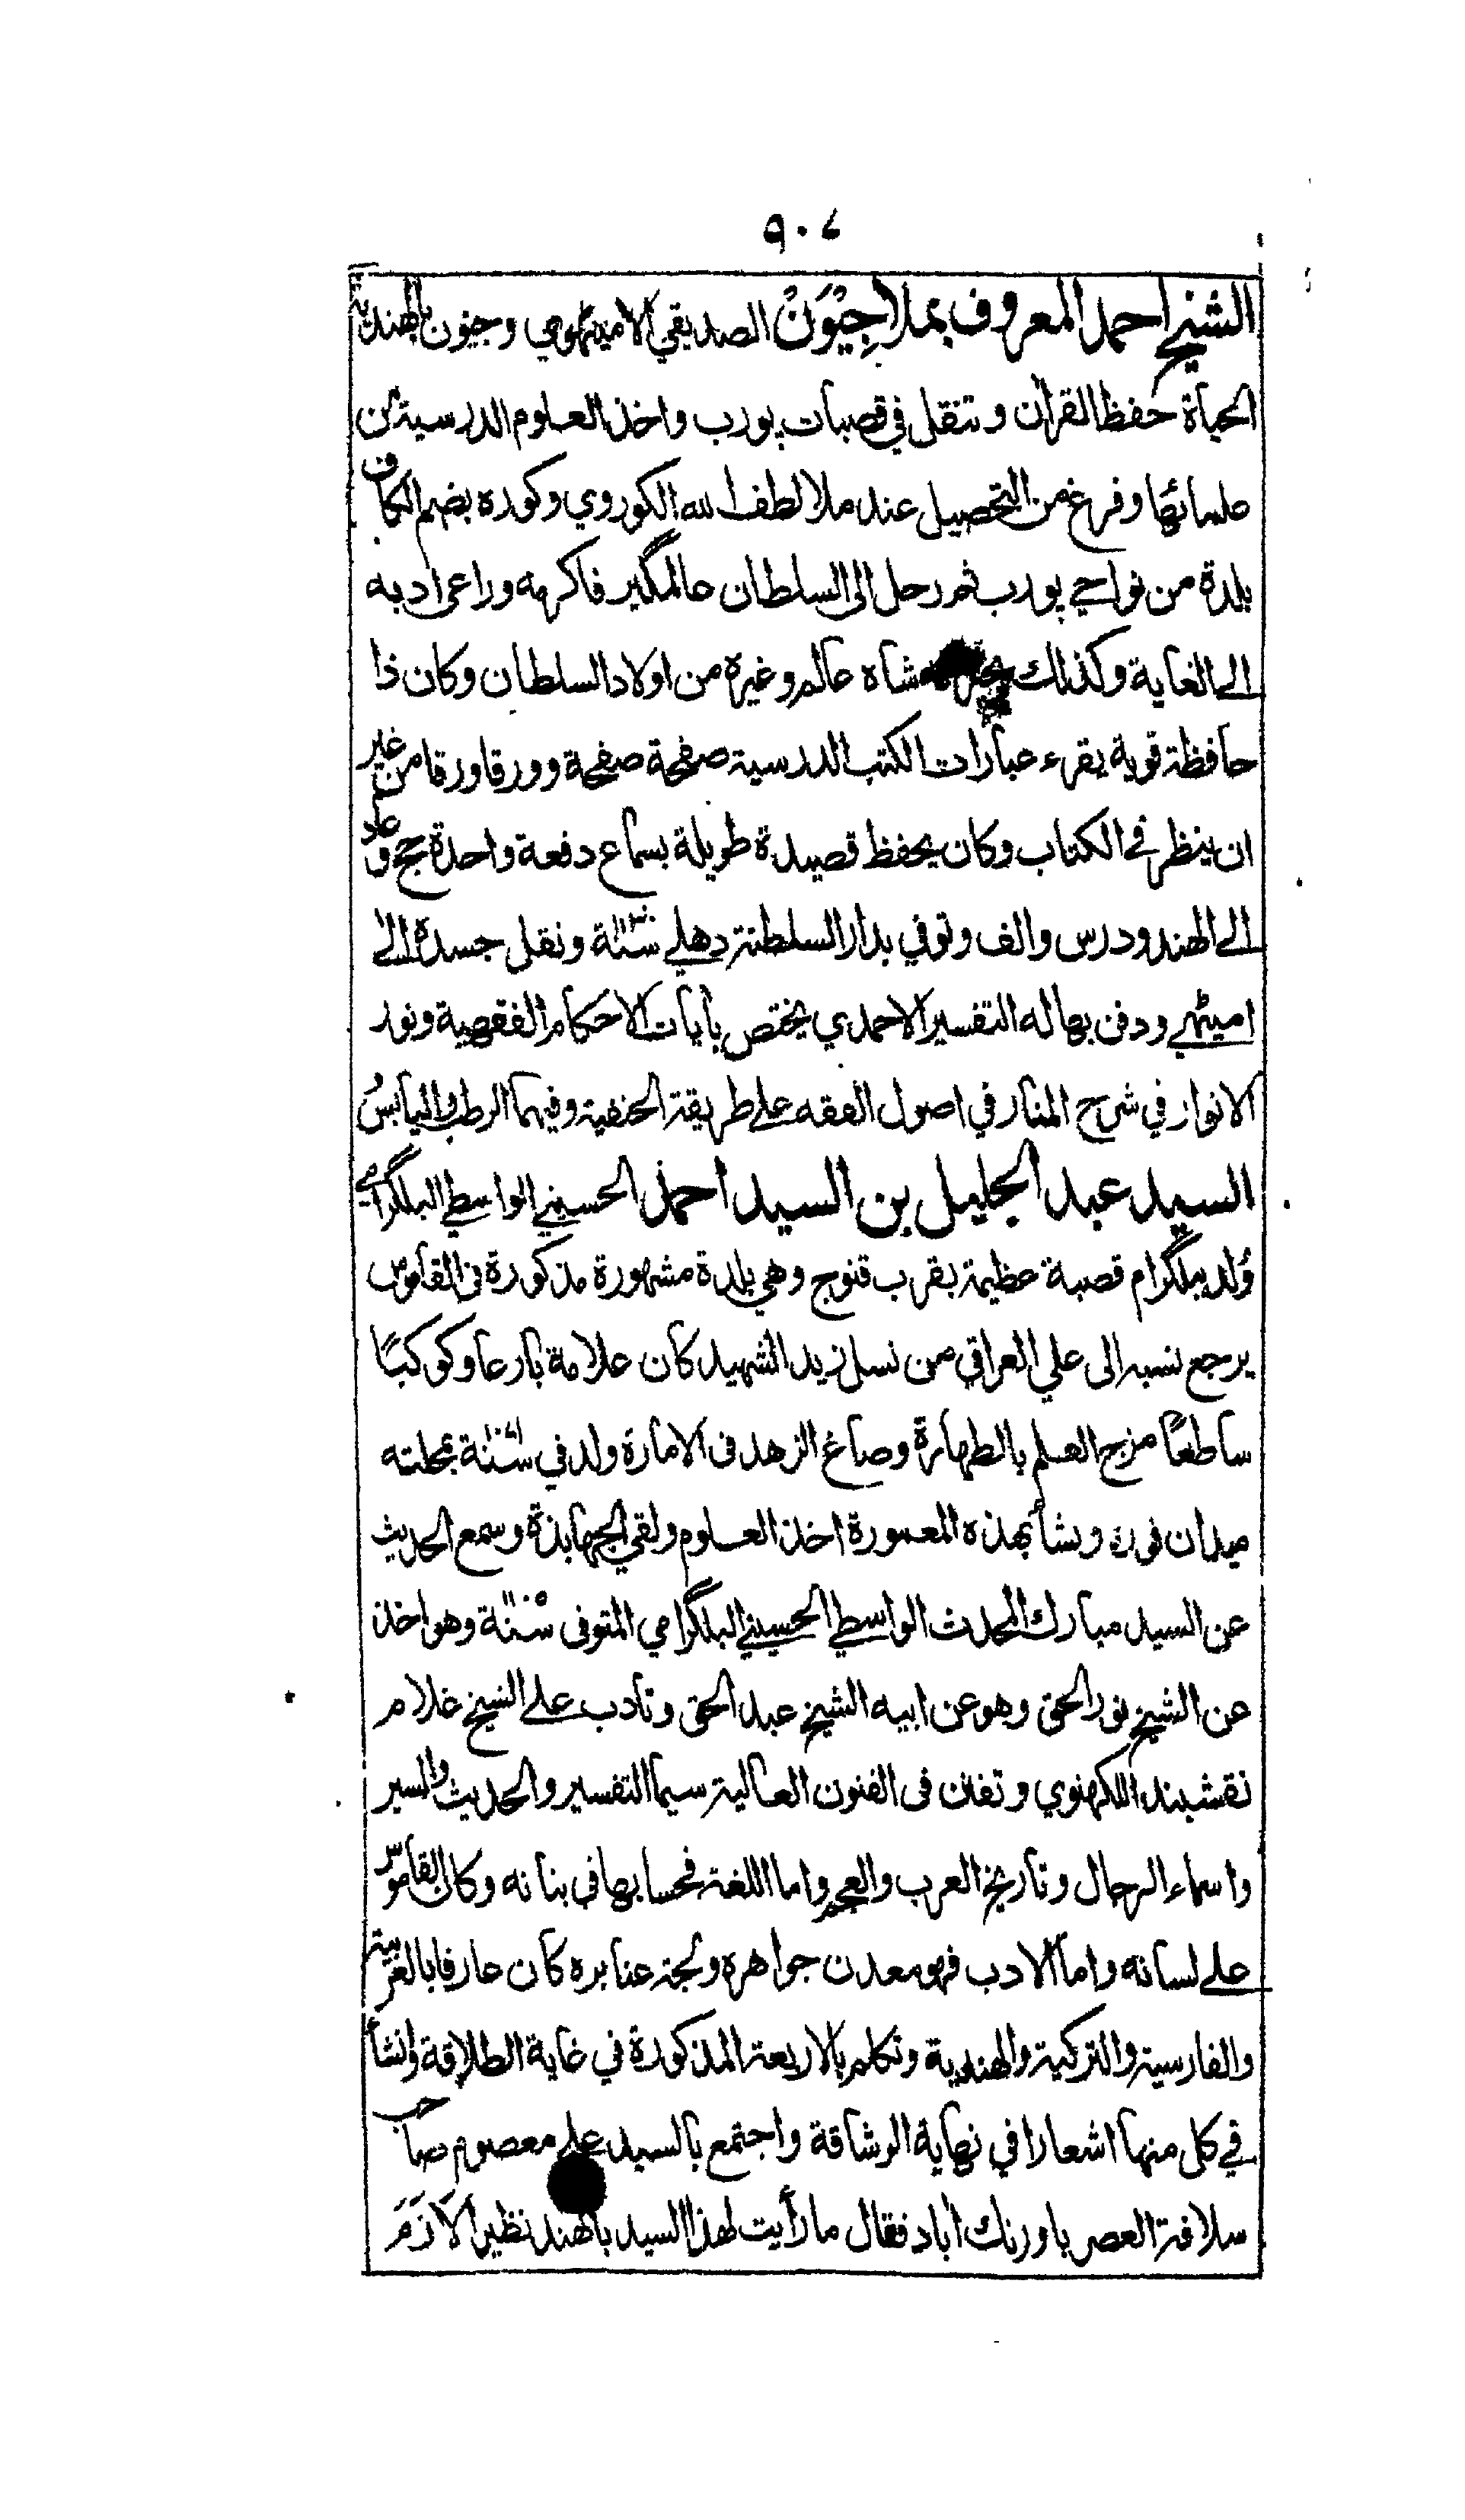 ٩٠٧
الشيخ احمد المعروف بملا جِيْوَنْ الصديقي الاميتهوي وجيون بالهندية
الحياة حفظ القرآن وتنقل في قصبات پورب واخذ العلوم الدرسية من
علمائها وفرغ من التحصيل عند ملا لطف الله الكوروي وكوره بضم الكاف
بلدة من نواحي پورب ثم رحل الى السلطان عالمگير فاكرمه وراعى ادبه
الى الغاية وكذلك شاه عالم وغيره من اولاد السلطان وكان ذا
حافظة قوية يقرء عبارات الكتب الدرسية صفحة صفحة وورقا ورقا من غير
ان ينظر في الكتاب وكان يحفظ قصيدة طويلة بسماع دفعة واحدة حج وعاد
الى الهند ودرس والف وتوفي بدار السلطنة دهلي سنة ونقل جسده الى
اميتهي ودفن بها له التفسير الاحمدي يختص بآيات الاحكام الفقهية ونور
الانوار في شرح المنار في اصول الفقه على طريقة الحنفية وفيهما الرطب واليابسُ
السيد عبد الجليل بن السيد احمد الحسيني الواسطي البلگرامي
وُلد ببلگرام قصبة عظيمة بقرب قنوج وهي بلدة مشهورة مذكورة في القاموس
يرجع نسبه الى علي العراقي من نسل زيد الشهيد كان علامة بارعا وكوكبًا
ساطعًا مزج العلم بالطهارة وصاغ الزهد في الامارة ولد في سنة بمحلته
ميدان پوره ونشأ بهذه المعمورة اخذ العلوم ولقي الجهابذة وسمع الحديث
عن السيد مبارك المحدث الواسطي الحسيني البلگرامي المتوفى سنة وهو اخذ
عن الشيخ نور الحق وهو عن ابيه الشيخ عبد الحق وتادب على الشيخ غلام
نقشبند اللكهنوي وتفنن في الفنون العالية سيما التفسير والحديث والسير
واسماء الرجال وتاريخ العرب والعجم واما اللغة فحسابها في بنانه وكان القاموس
على لسانه واما الادب فهو معدن جواهره ولجة عنابره كان عارفا بالعربية
والفارسية والتركية والهندية وتكلم بالاربعة المذكورة في غاية الطلاقة وانشأ
في كل منها اشعارا في نهاية الرشاقة واجتمع بالسيد علي معصوم صاحب
سلافة العصر باورنك اباد فقال ما رأيت لهذا السيد بالهند نظيرا لازَمَ